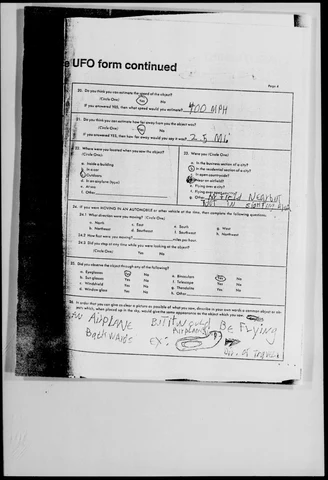 e UFO form continued
Page 4
20. Do you think you can estimate the speed of the object?
(Circle One) Yes No
If you answered YES, then what speed would you estimate? 400 MPH
21. Do you think you can estimate how far away from you the object was?
(Circle One) Yes No
If you answered YES, then how far away would you say it was? 2.5 Mi
22. Where were you located when you saw the object?
(Circle One):
a. Inside a building
b. In a car
c. Outdoors
d. In an airplane (type)
e. At sea
f. Other
23. Were you (Circle One)
a. In the business section of a city?
b. In the residential section of a city?
c. In open countryside?
d. Near an airfield?
e. Flying over a city?
f. Flying over
g. Other
24. If you were MOVING IN AN AUTOMOBILE or other vehicle at the time, then complete the following questions:
24.1 What direction were you moving? (Circle One)
a. North c. East e. South g. West
b. Northeast d. Southeast f. Southwest h. Northwest
24.2 How fast were you moving? miles per hour.
24.3 Did you stop at any time while you were looking at the object?
(Circle One) Yes No
25. Did you observe the object through any of the following?
a. Eyeglasses Yes No e. Binoculars Yes No
b. Sun glasses Yes No f. Telescope Yes No
c. Windshield Yes No g. Theodolite Yes No
d. Window glass Yes No h. Other
26. In order that you can give as clear a picture as possible of what you saw, describe in your own words a common object or objects which, when placed up in the sky, would give the same appearance as the object which you saw.
AN AIRPLANE BUT IT WOULD BE FLYING
Backwards
EX:
Dir. of Travel